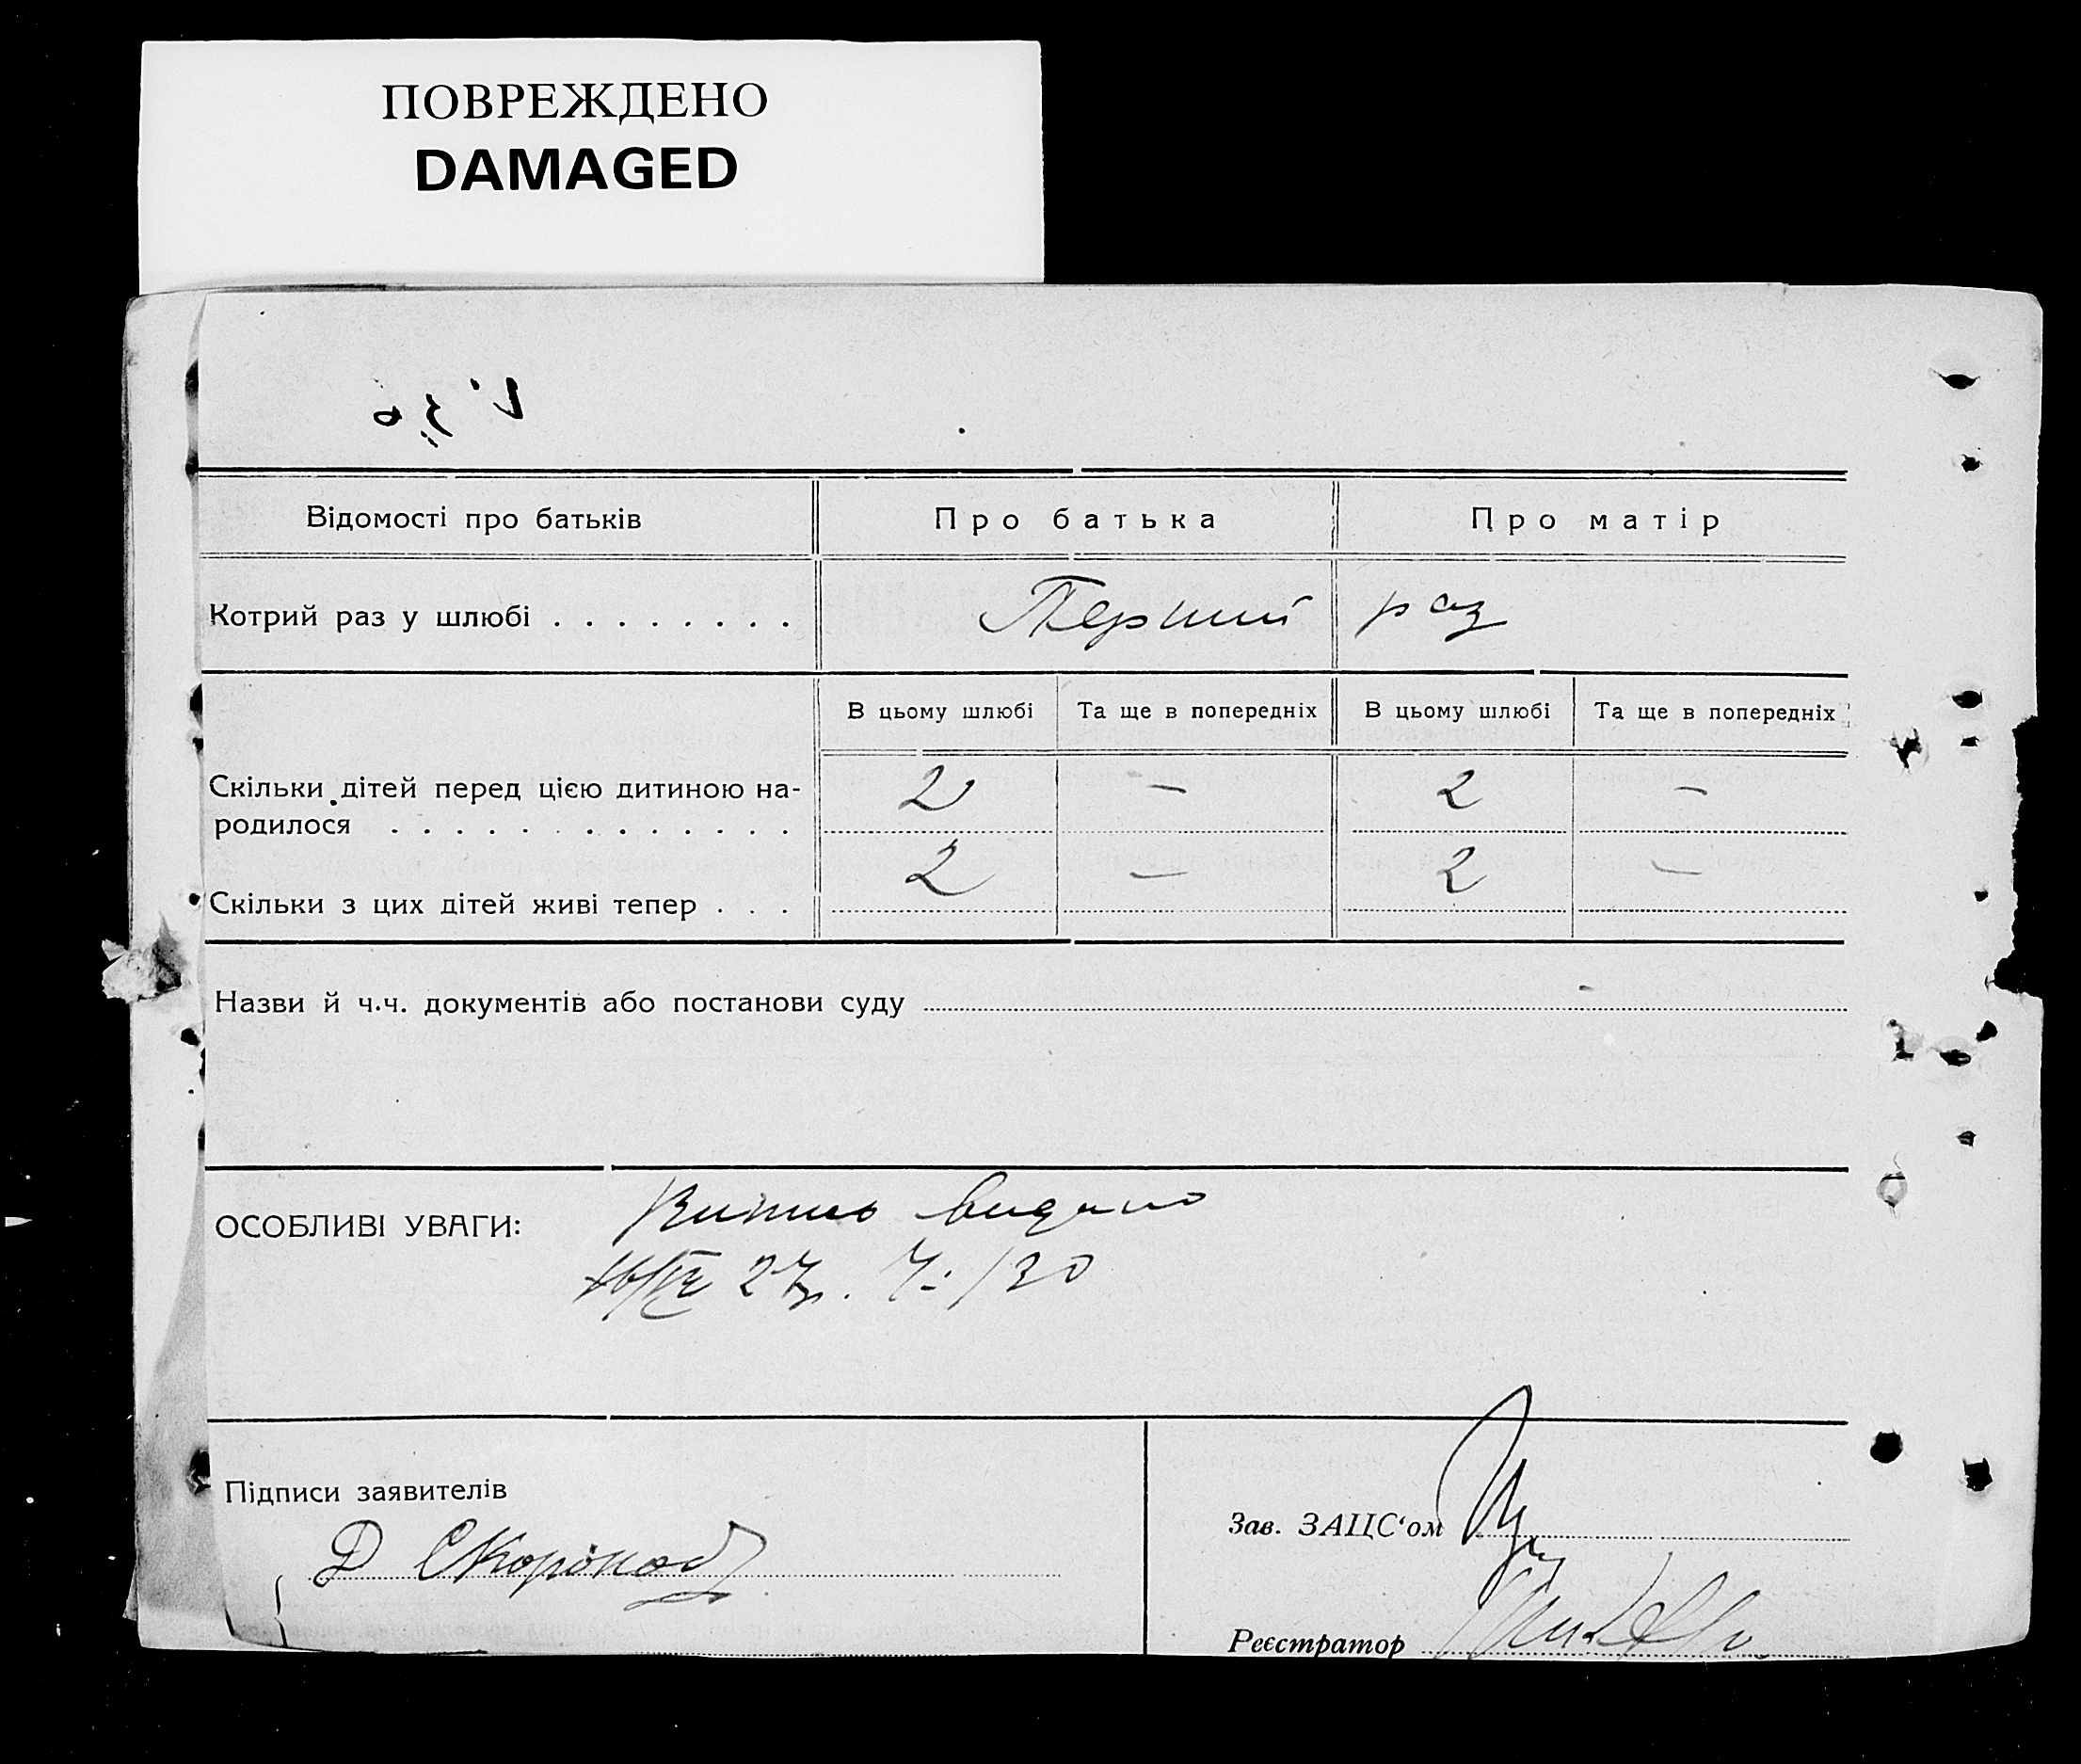 ПОВРЕЖДЕНО
DAMAGED
Відомості про батьків
Про батька
Про матір
Котрий раз у шлюбі . . . . . . . .
Перший раз
В цьому шлюбі
Та ще в попередніх
В цьому шлюбі
Та ще в попередніх
Скільки дітей перед цією дитиною на-
родилося . . . . . . . . . . . . .
2 — 2 —
Скільки з цих дітей живі тепер . . .
2 — 2 —
Назви й ч.ч. документів або постанови суду
ОСОБЛИВІ УВАГИ:
Витяг видано
27р. Ч: 130
Підписи заявителів
Д
Зав. ЗАЦС‘ом
Реєстратор